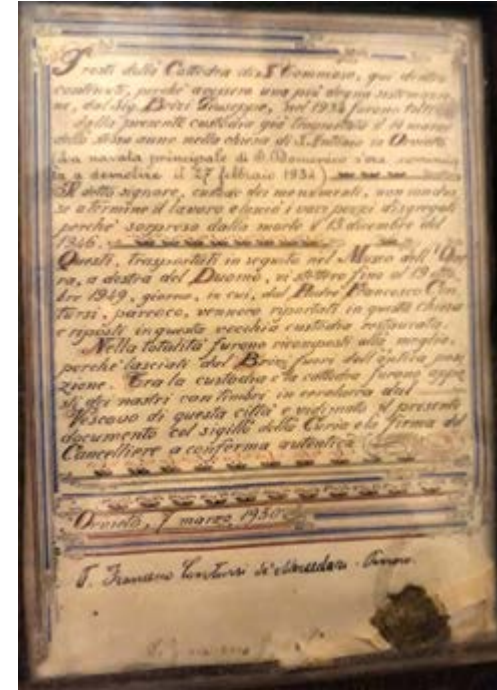 I resti della Cattedra di S. Tommaso, qui dentro
contenuti, perchè avessero una più degna sistemazio-
ne, dal Sig. Brizi Giuseppe, nel 1934 furono tolti
dalla presente custodia già trasportata il 14 marzo
dello stesso anno nella chiesa di S. Antonio in Orvieto
(La navata principale di S. Domenico s'era cominciata
a demolire il 27 febbraio 1934)
Il detto signore, custode dei monumenti, non condus-
se a termine il lavoro e lasciò i vari pezzi disgregati
perchè sorpreso dalla morte il 13 dicembre del
1946.
Questi, trasportati in seguito nel Museo dell'Ope-
ra, a destra del Duomo, vi stettero fino al 19
bre 1949, giorno, in cui, dal Padre Francesco Con-
tursi, parroco, vennero riportati in questa chiesa
e riposti in questa vecchia custodia restaurata.
Nella totalità furono ricomposti alla meglio,
perchè lasciati dal Brizi fuori dell'antica posi-
zione. Tra la custodia e la cattedra furono appo-
sti dei nastri con timbri in ceralacca dal
Vescovo di questa città e vidimato il presente
documento col sigillo della Curia e la firma del
Cancelliere a conferma autentica
Orvieto, 7 marzo 1950
P. Francesco Contursi Parroco